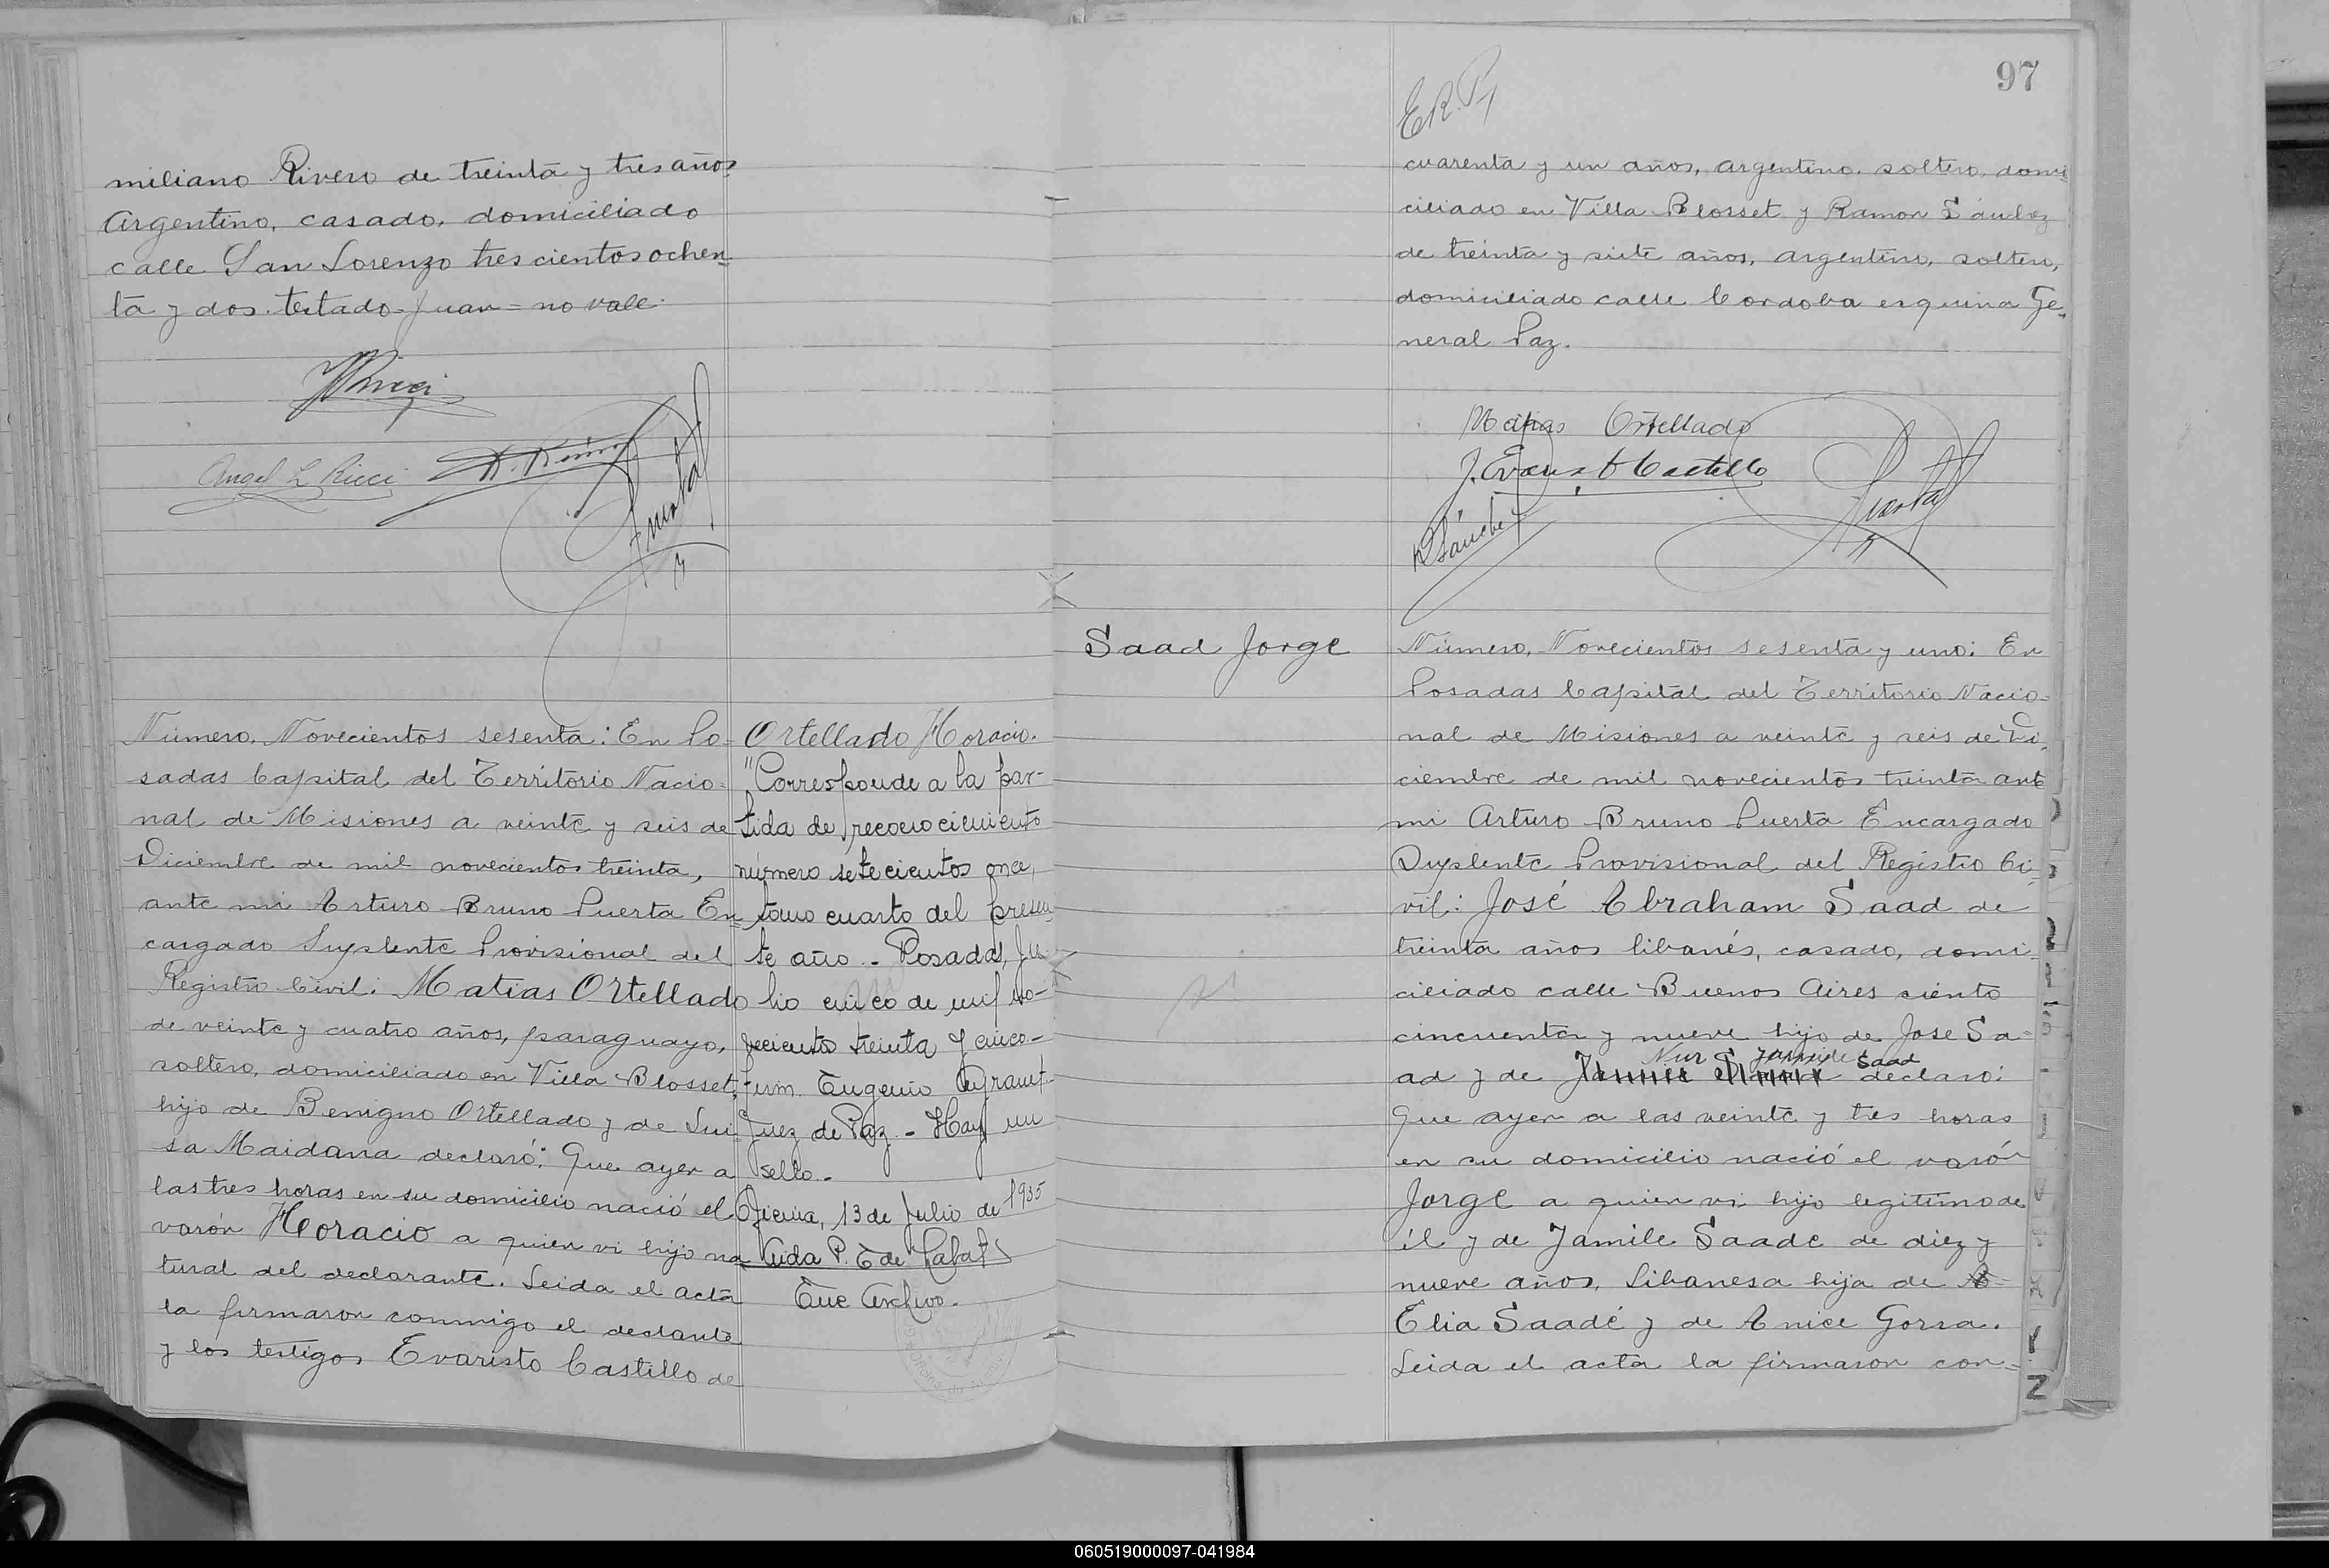 miliano Rivero de treinta y tres años
Argentino, casado, domiciliado
calle San Lorenzo trescientos ochen-
ta y dos. testado-Juan=no vale.
Angel L Ricci
Número, Novecientos sesenta: En Po-
sadas Capital del Territorio Nacio-
nal de Misiones a veinte y seis de
Diciembre de mil novecientos treinta,
ante mi Arturo Bruno Puerta En
cargado Suplente Provisional del
Registro Civil: Matias Ortellado
de veinte y cuatro años, paraguayo,
soltero, domiciliado en Villa Blosset,
hijo de Benigno Ortellado y de Lui-
sa Maidana declaró: Que ayer a
las tres horas en su domicilio nació el
varón Horacio a quien vi hijo na-
tural del declarante. Leida el acta
la firmaron conmigo el declante
y los testigos Evaristo Castillo de
Ortellado Horacio.
"Corresponde a la par-
tida de reconocimiento
número setecientos once,
tomo cuarto del presen-
te año.- Posadas, Ju-
lio cinco de mil no-
vecientos treinta y cinco-
Eugenio
Juez de Paz.- Hay un
sello.-
Oficina, 13 de Julio de 1935
97
E.R.P.
cuarenta y un años, argentino, soltero, domi-
ciliado en Villa Blosset y Ramon Sánchez
de treinta y siete años, argentino, soltero,
domiciliado calle Cordoba esquina Ge-
neral Paz.
Matias Ortellado
J. Evaristo Castillo
R Sánchez
Puerta
Saad Jorge
Número, Novecientos sesenta y uno: En
Posadas Capital del Territorio Nacio-
nal de Misiones a veinte y seis de Di-
ciembre de mil novecientos treinta ante
mi Arturo Bruno Puerta Encargado
Suplente Provisional del Registro Ci-
vil: José Abraham Saad de
treinta años libanés, casado, domi-
ciliado calle Buenos Aires ciento
cincuenta y nueve hijo de Jose Sa-
ad y de Saad declaró:
Que ayer a las veinte y tres horas
en su domicilio nació el varón
Jorge a quien vi hijo legitimo de
él y de Jamile Saade de diez y
nueve años, Libanesa hija de
Elia Saadé y de Anice Gorra.
Leida el acta la firmaron con-
060519000097-041984